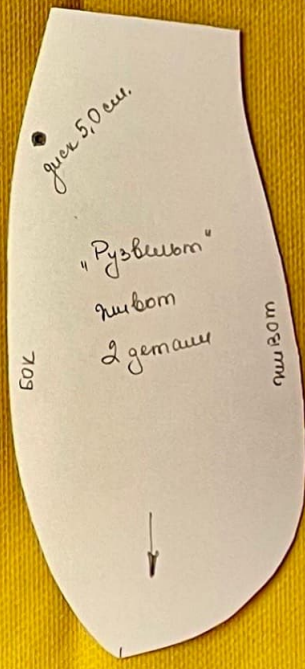 диск 5,0 см.
„Рузвельт"
живот
2 детали
бок
живот